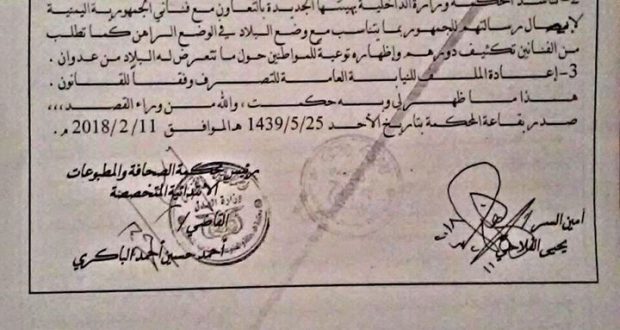 2- تناشد المحكمة وزارة الداخلية بهيئتها الجديدة بالتعاون مع فناني الجمهورية اليمنية
لإيصال رسالتهم للجمهور بما يتناسب مع وضع البلاد في الوضع الراهن كما تطلب
من الفنانين تكثيف دورهم وإظهاره توعية للمواطنين حول ما تتعرض له البلاد من عدوان .
3- إعادة الملف للنيابة العامة للتصرف وفقاً للقانون .
هذا ما ظهر لي وبه حكمت ، والله من وراء القصد ,,,
صدر بقاعة المحكمة بتاريخ الأحد 1439/5/25 هـ الموافق 2018/2/11 م .
رئيس محكمة الصحافة والمطبوعات
الابتدائية المتخصصة
القاضي/
أحمد حسين أحمد الباكري
أمين السر
يحيى الفلاحي
وزارة العدل